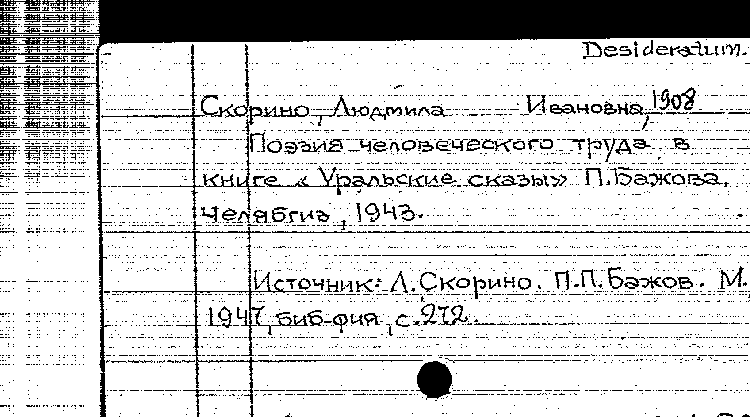 Desideratum.
Скорино, Людмила Ивановна, 1908
Поэзия человеческого труда в
книге « Уральские сказы» П.Бажова.
Челябгиз, 1943.
Источник: Л.Скорино. П.П.Бажов. М,
1947, биб-фия, с.272.